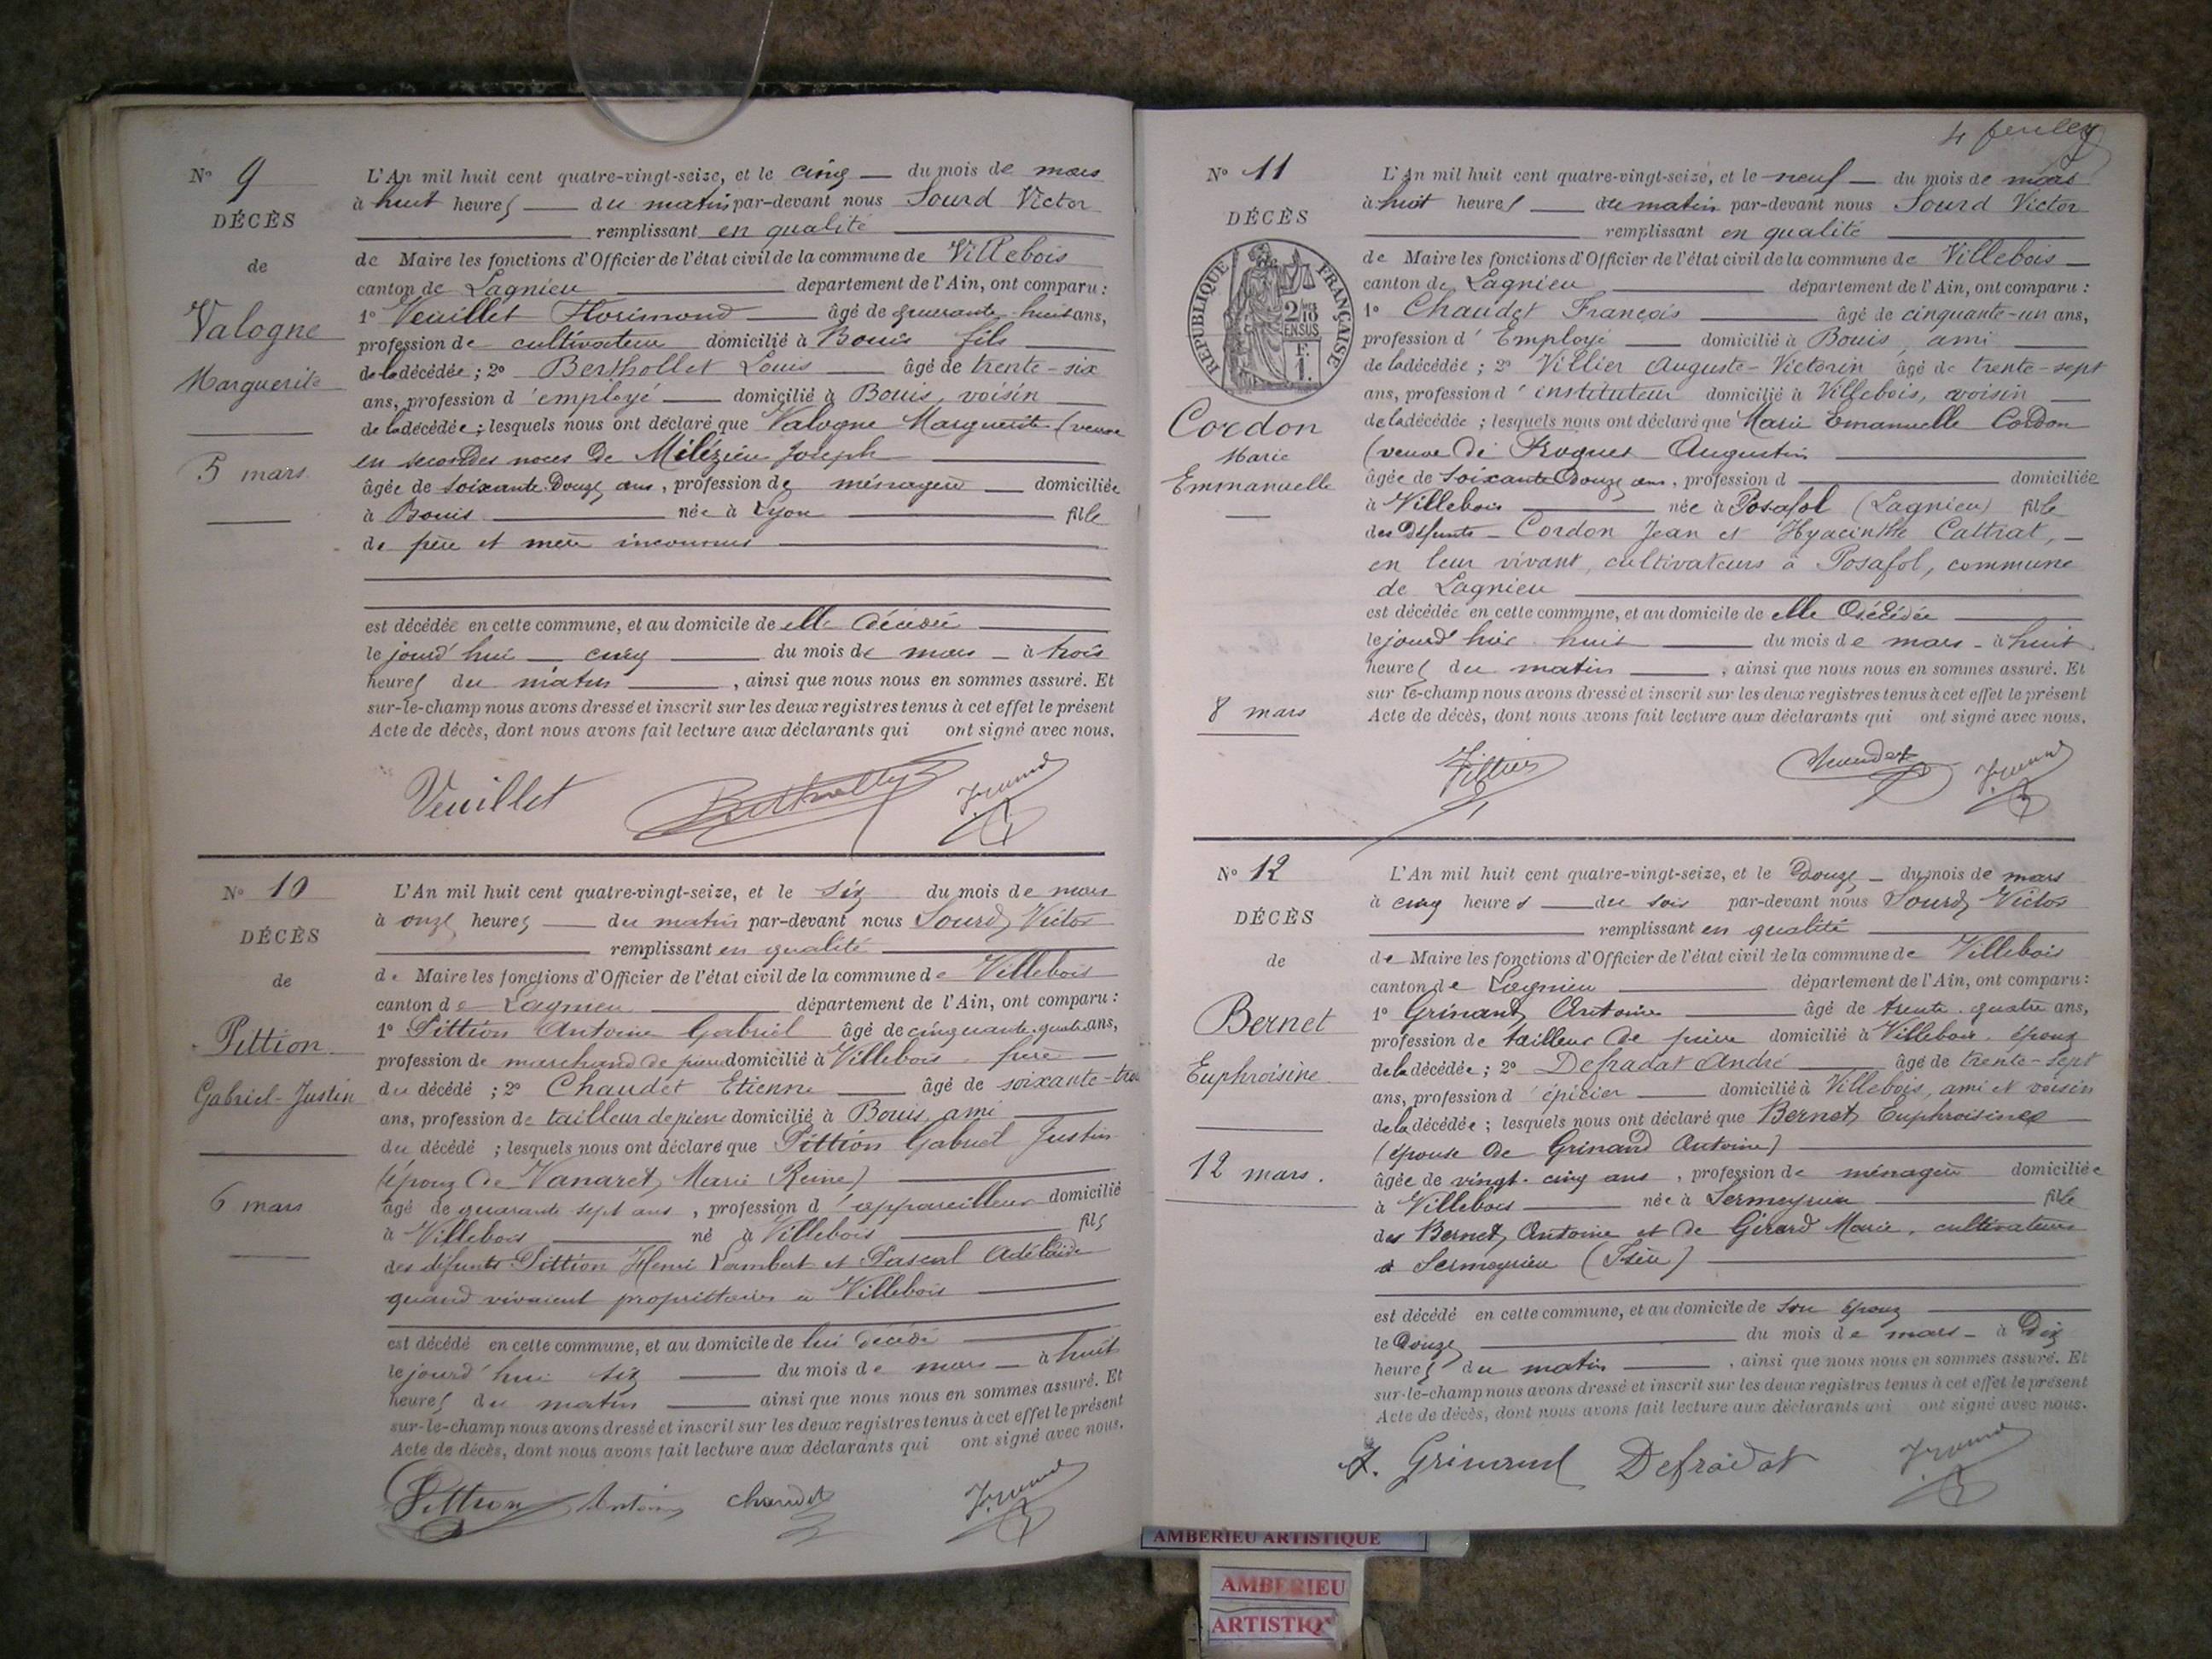 N° 9
DÉCÈS
de
Valogne
Marguerite
5 mars
L'An mil huit cent quatre-vingt-seize, et le cinq du mois de mars
à huit heures du matin par-devant nous Sourd Victor
remplissant en qualité
de Maire les fonctions d'Officier de l'état civil de la commune de Villebois
canton de Lagnieu département de l'Ain, ont comparu :
1° Veuillet Florimond âgé de quarante-huit ans,
profession de cultivateur domicilié à Bouis fils
de la décédée ; 2° Berthollet Louis âgé de trente-six
ans, profession d'employé domicilié à Bouis, voisin
de la décédée ; lesquels nous ont déclaré que Valogne Marguerite (veuve
en secondes noces de Milézieu Joseph
âgée de soixante douze ans, profession de ménagère domiciliée
à Bouis née à Lyon fille
de père et mère inconnus
est décédée en cette commune, et au domicile de elle décédée
le jourd'hui cinq du mois de mars à trois
heures du matin, ainsi que nous nous en sommes assuré. Et
sur-le-champ nous avons dressé et inscrit sur les deux registres tenus à cet effet le présent
Acte de décès, dont nous avons fait lecture aux déclarants qui ont signé avec nous.
Veuillet
N° 10
DÉCÈS
de
Pittion
Gabriel-Justin
6 mars
L'An mil huit cent quatre-vingt-seize, et le six du mois de mars
à onze heures du matin par-devant nous Sourd Victor
remplissant en qualité
de Maire les fonctions d'Officier de l'état civil de la commune de Villebois
canton de Lagnieu département de l'Ain, ont comparu :
1° Pittion Antoine Gabriel âgé de cinquante-quatre ans,
profession de marchand de pierre domicilié à Villebois frère
du décédé ; 2° Chaudet Etienne âgé de soixante-trois
ans, profession de tailleur de pierre domicilié à Bouis, ami
du décédé ; lesquels nous ont déclaré que Pittion Gabriel Justin
(époux de Vanaret, Marie Reine)
âgé de quarante sept ans, profession d'appareilleur domicilié
à Villebois né à Villebois fils
des défunts Pittion Henri Lambert et Pascal Adélaïde
quand vivaient propriétaires à Villebois
est décédé en cette commune, et au domicile de lui décédé
le jourd'hui six du mois de mars à huit
heures du matin ainsi que nous nous en sommes assuré. Et
sur-le-champ nous avons dressé et inscrit sur les deux registres tenus à cet effet le présent
Acte de décès, dont nous avons fait lecture aux déclarants qui ont signé avec nous.
Pittion Antoine Chaudet
4
N° 11
DÉCÈS
RÉPUBLIQUE FRANÇAISE
2/10 EN SUS
Cordon
Marie
Emmanuelle
8 mars
L'An mil huit cent quatre-vingt-seize, et le neuf du mois de mars
à huit heures du matin par-devant nous Sourd Victor
remplissant en qualité
de Maire les fonctions d'Officier de l'état civil de la commune de Villebois
canton de Lagnieu département de l'Ain, ont comparu :
1° Chaudet François âgé de cinquante-un ans,
profession d'Employé domicilié à Bouis, ami
de la décédée ; 2° Villier Auguste-Victorin âgé de trente-sept
ans, profession d'instituteur domicilié à Villebois, voisin
de la décédée ; lesquels nous ont déclaré que Marie Emanuelle Cordon
(veuve de Augustin
âgée de soixante douze ans, profession d domiciliée
à Villebois née à Posafol (Lagnieu) fille
des défunts Cordon Jean et Hyacinthe Cattrat,
en leur vivant, cultivateurs à Posafol, commune
de Lagnieu
est décédée en cette commune, et au domicile de elle décédée
le jourd'hier huit du mois de mars à huit
heures du matin, ainsi que nous nous en sommes assuré. Et
sur-le-champ nous avons dressé et inscrit sur les deux registres tenus à cet effet le présent
Acte de décès, dont nous avons fait lecture aux déclarants qui ont signé avec nous.
Villier Chaudet
N° 12
DÉCÈS
de
Bernet
Euphroisine
12 mars.
L'An mil huit cent quatre-vingt-seize, et le douze du mois de mars
à cinq heures du soir par-devant nous Sourd Victor
remplissant en qualité
de Maire les fonctions d'Officier de l'état civil de la commune de Villebois
canton de Lagnieu département de l'Ain, ont comparu :
1° Grinand Antoine âgé de trente-quatre ans,
profession de tailleur de pierre domicilié à Villebois, époux
de la décédée ; 2° Defradat André âgé de trente-sept
ans, profession d'épicier domicilié à Villebois, ami et voisin
de la décédée ; lesquels nous ont déclaré que Bernet Euphroisine
(épouse de Grinand Antoine)
âgée de vingt-cinq ans, profession de ménagère domiciliée
à Villebois née à Sermeyrieu fille
des Bernet Antoine et de Girard Marie, cultivateurs
à Sermeyrieu (Isère)
est décédé en cette commune, et au domicile de son époux
le douze du mois de mars à dix
heures du matin, ainsi que nous nous en sommes assuré. Et
sur-le-champ nous avons dressé et inscrit sur les deux registres tenus à cet effet le présent
Acte de décès, dont nous avons fait lecture aux déclarants qui ont signé avec nous.
A. Grinand Defradat
AMBERIEU ARTISTIQUE
AMBERIEU
ARTISTIQ